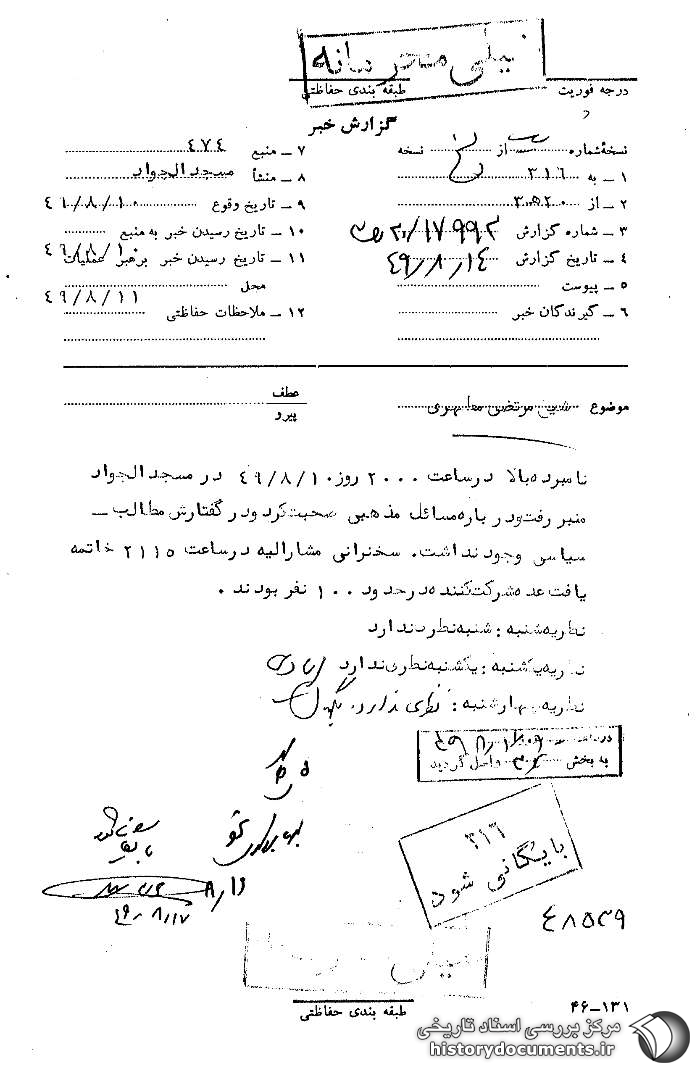 خیلی محرمانه
درجه فوریت
طبقه بندی حفاظتی
گزارش خبر
نسخهٔ شماره از نسخه
۱ ـ به ۳۱۶
۲ ـ از ۳۰ه۲۰
۳ ـ شماره گزارش ۲۰/۱۷۹۹۲
۴ ـ تاریخ گزارش ۴۹/۸/۱۴
۵ ـ پیوست
۶ ـ گیرندگان خبر
۷ ـ منبع ٤٧٤
۸ ـ منشأ مسجد الجواد
۹ ـ تاریخ وقوع ٤٩/٨/١٠
۱۰ ـ تاریخ رسیدن خبر به منبع
۱۱ ـ تاریخ رسیدن خبر برهبر عملیات ٤٩/٨/١٠
محل
٤٩/٨/١١
۱۲ ـ ملاحظات حفاظتی
موضوع شیخ مرتضی مطهری
عطف
پیرو
نامبرده بالا در ساعت ۲۰۰۰ روز ٤٩/٨/١٠ در مسجد الجواد
منبر رفت و در باره مسائل مذهبی صحبت کرد و در گفتارش مطالب ـ
سیاسی وجود نداشت. سخنرانی مشارالیه در ساعت ۲۱۱۵ خاتمه
یافت عده شرکت کننده در حدود ۱۰۰ نفر بودند .
نظریه شنبه : شنبه نظری ندارد
نظریه یکشنبه : یکشنبه نظری ندارد
نظریه چهارشنبه : نظری ندارد.
به بخش ۳۱۶ واصل گردید
۳۱۶
بایگانی شود
۴۹/۸/۱۷
٤٨٥٣٩
خیلی
طبقه بندی حفاظتی
۴۶-۱۳۱
مرکز بررسی اسناد تاریخی
historydocuments.ir